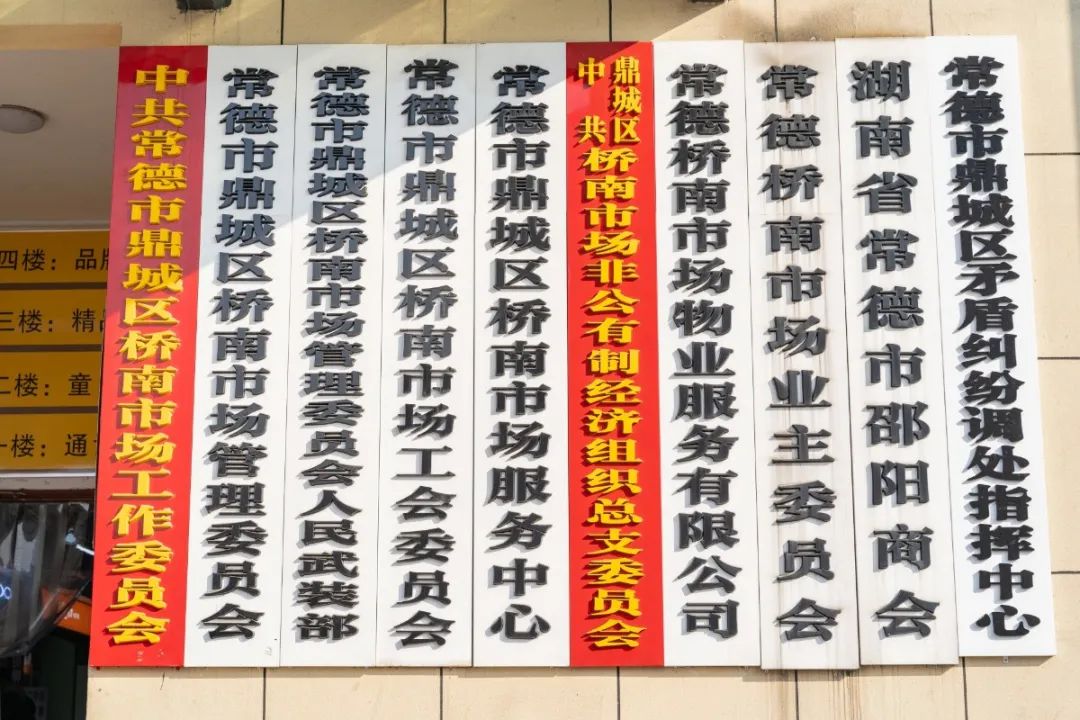 中共常德市鼎城区桥南市场工作委员会
常德市鼎城区桥南市场管理委员会
常德市鼎城区桥南市场管理委员会人民武装部
常德市鼎城区桥南市场工会委员会
常德市鼎城区桥南市场服务中心
中共鼎城区桥南市场非公有制经济组织总支委员会
常德桥南市场物业服务有限公司
常德桥南市场业主委员会
湖南省常德市邵阳商会
常德市鼎城区矛盾纠纷调处指挥中心
四楼：品
三楼：精
二楼：童
一楼：通